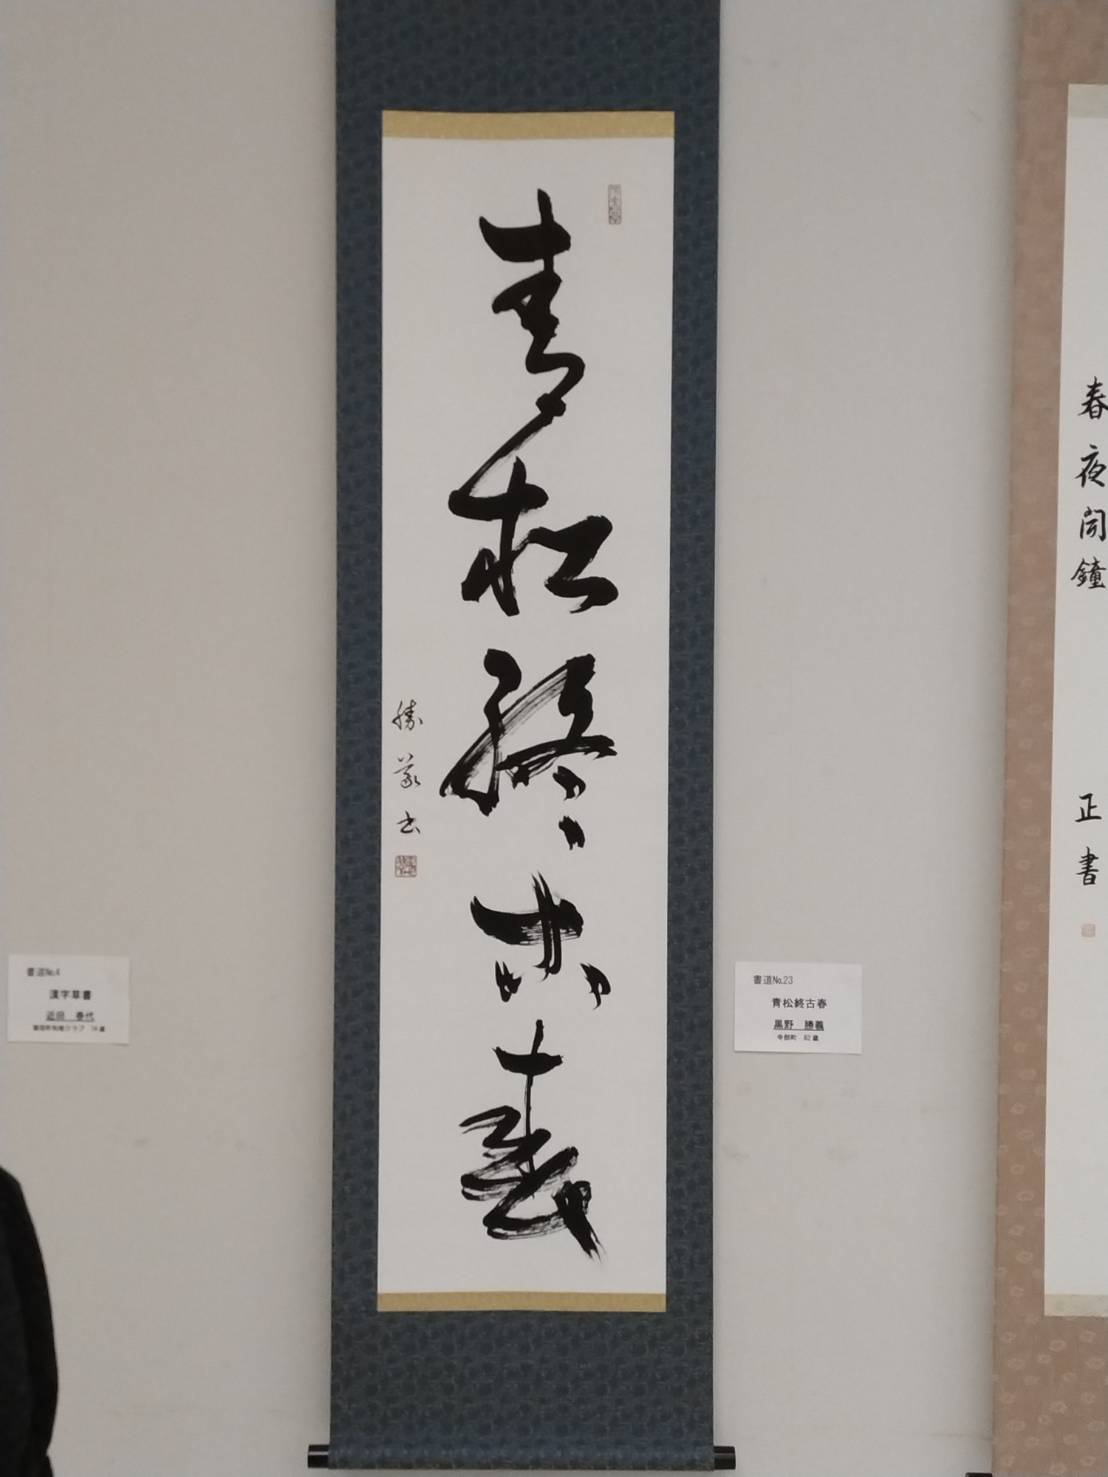 青松終古春
勝義書
書道№4
漢字草書
書道№23
青松終古春
黒野 勝義
寺部町 82歳
春夜聞鐘
正書